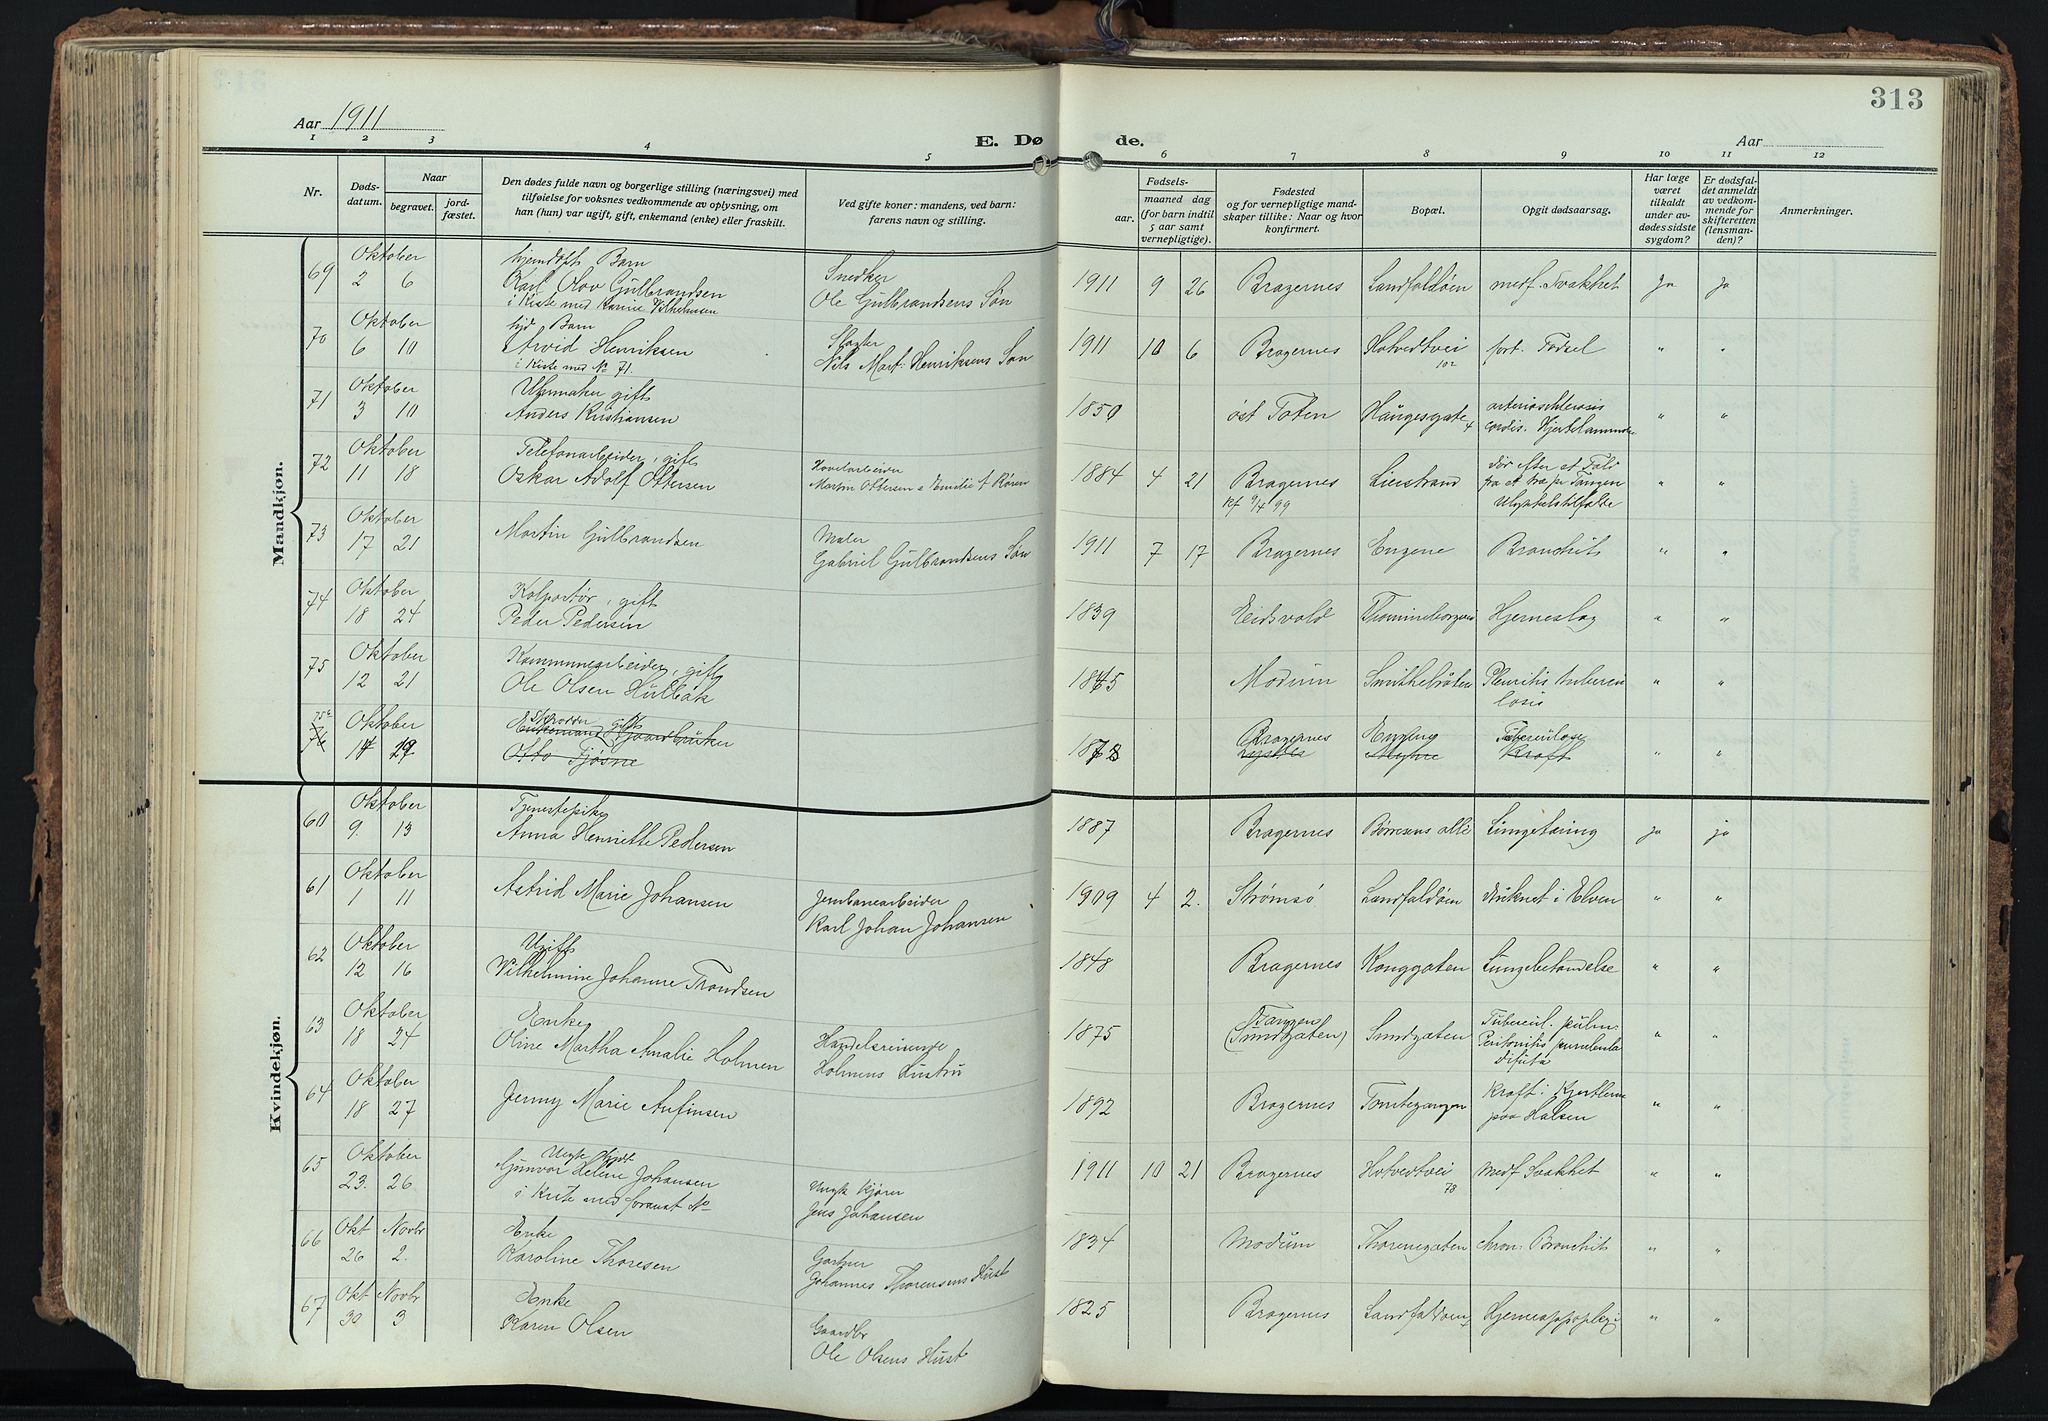 313
Aar 1911
E. Dø de.
Aar
1 2 3 4 5 6 7 8 9 10 11 12
Nr.
Døds-datum.
Naar
begravet.
jord-fæstet.
Den dødes fulde navn og borgerlige stilling (næringsvei) med
tilføielse for voksnes vedkommende av oplysning, om
han (hun) var ugift, gift, enkemand (enke) eller fraskilt.
Ved gifte koner: mandens, ved barn:
farens navn og stilling.
Fødsels-
aar.
maaned dag
(for barn indtil
5 aar samt
vernepligtige).
Fødested
og for vernepligtige mand-
skaper tillike: Naar og hvor
konfirmert.
Bopæl.
Opgit dødsaarsag.
Har læge
været
tilkaldt
under av-
dødes sidste
sygdom?
Er dødsfal-
det anmeldt
av vedkom-
mende for
skifteretten
(lensman-
den)?
Anmerkninger.
Mandkjøn.
Oktober hjemdøpt Barn Snedker
69 2 6 Karl Olov Gulbrandsen Ole Gulbrandsens Søn 1911 9 26 Bragernes Landfaldøen medf. Svakhet Ja Ja
i Kiste med Karnie Vilhelmsen
Oktober Barn Slagter
70 6 10 Arvid Henriksen Nils Mart: Henriksens Søn 1911 10 6 Bragernes Hotvedtvei 102 fort. Fødsel " "
i Kiste med No 71.
Oktober Uhrmaker gift
71 3 10 Anders Kristiansen 1850 øst Toten Haugesgate 4 arteriosclerosis cordis. " "
Oktober Telefonarbeider, gift
72 11 18 Oskar Adolf Ottersen Martin Ottersen & Emilie f. Røren 1884 4 21 Bragernes Kf 9/4 99 Lierstrand Død efter et Fald fra et træ pr Tangen Ulykkelstilfælde " "
Oktober Maler
73 17 21 Martin Gulbrandsen Gabriel Gulbrandsens Søn 1911 7 17 Bragernes Engene Bronchit " "
Oktober Kolportør, gift
74 18 24 Peder Pedersen 1839 Eidsvold Hjerneslag " "
Oktober Kommunearbeider, gift
75 12 21 Ole Olsen Hulbak 1845 Modum Smithebråten " "
Oktober Skrædder gift
Enkemand Gaardbruker
75b 76 14 29 Otto Fjøsne 1878 Bragernes Engene Tuberculose Kraft " "
Kvindekjøn.
Oktober Tjenestepike
60 9. 13 Anna Henriette Pedersen 1887 Bragernes Børresens allé Lungetæring ja ja
Oktober Jernbanearbeider
61 1 11 Astrid Marie Johansen Karl Johan Johansen 1909 4 2. Strømsø Landfaldøen druknet i Elven " "
Oktober Ugift
62 12 16 Vilhelmine Johanne Trondsen 1848 Bragernes Konggaten Lungebetændelse " "
Oktober Enke Handelsreisende
63 18 24 Oline Martha Amalie Holmen Holmens Hustru 1875 Tangen (Tundgaten) Sundgaten Tubercul. pulm. Peritonitis purulenta difusa " "
Oktober
64 18 27 Jenny Marie Anfinsen 1892 Bragernes Tomtegangen Kraft i Kjertlerne paa Halsen " "
Oktober Uegte
65 23. 26 Gunvor Helene Johansen Jens Johansen 1911 10 21 Bragernes Hotvedtvei 78 medf Svakhet " "
i Kiste med foranst No
Okt Novbr Enke Gartner
66 26 2. Karoline Thoresen Johannes Thorensens Hust 1834 Modum Thornegaten kron: Bronchit " "
Okt Novbr Enke Gaardbr
67 30 3 Karen Olsen Ole Olsens Hust 1825 Bragernes Landfaldøen Hjerneapopleksi " "